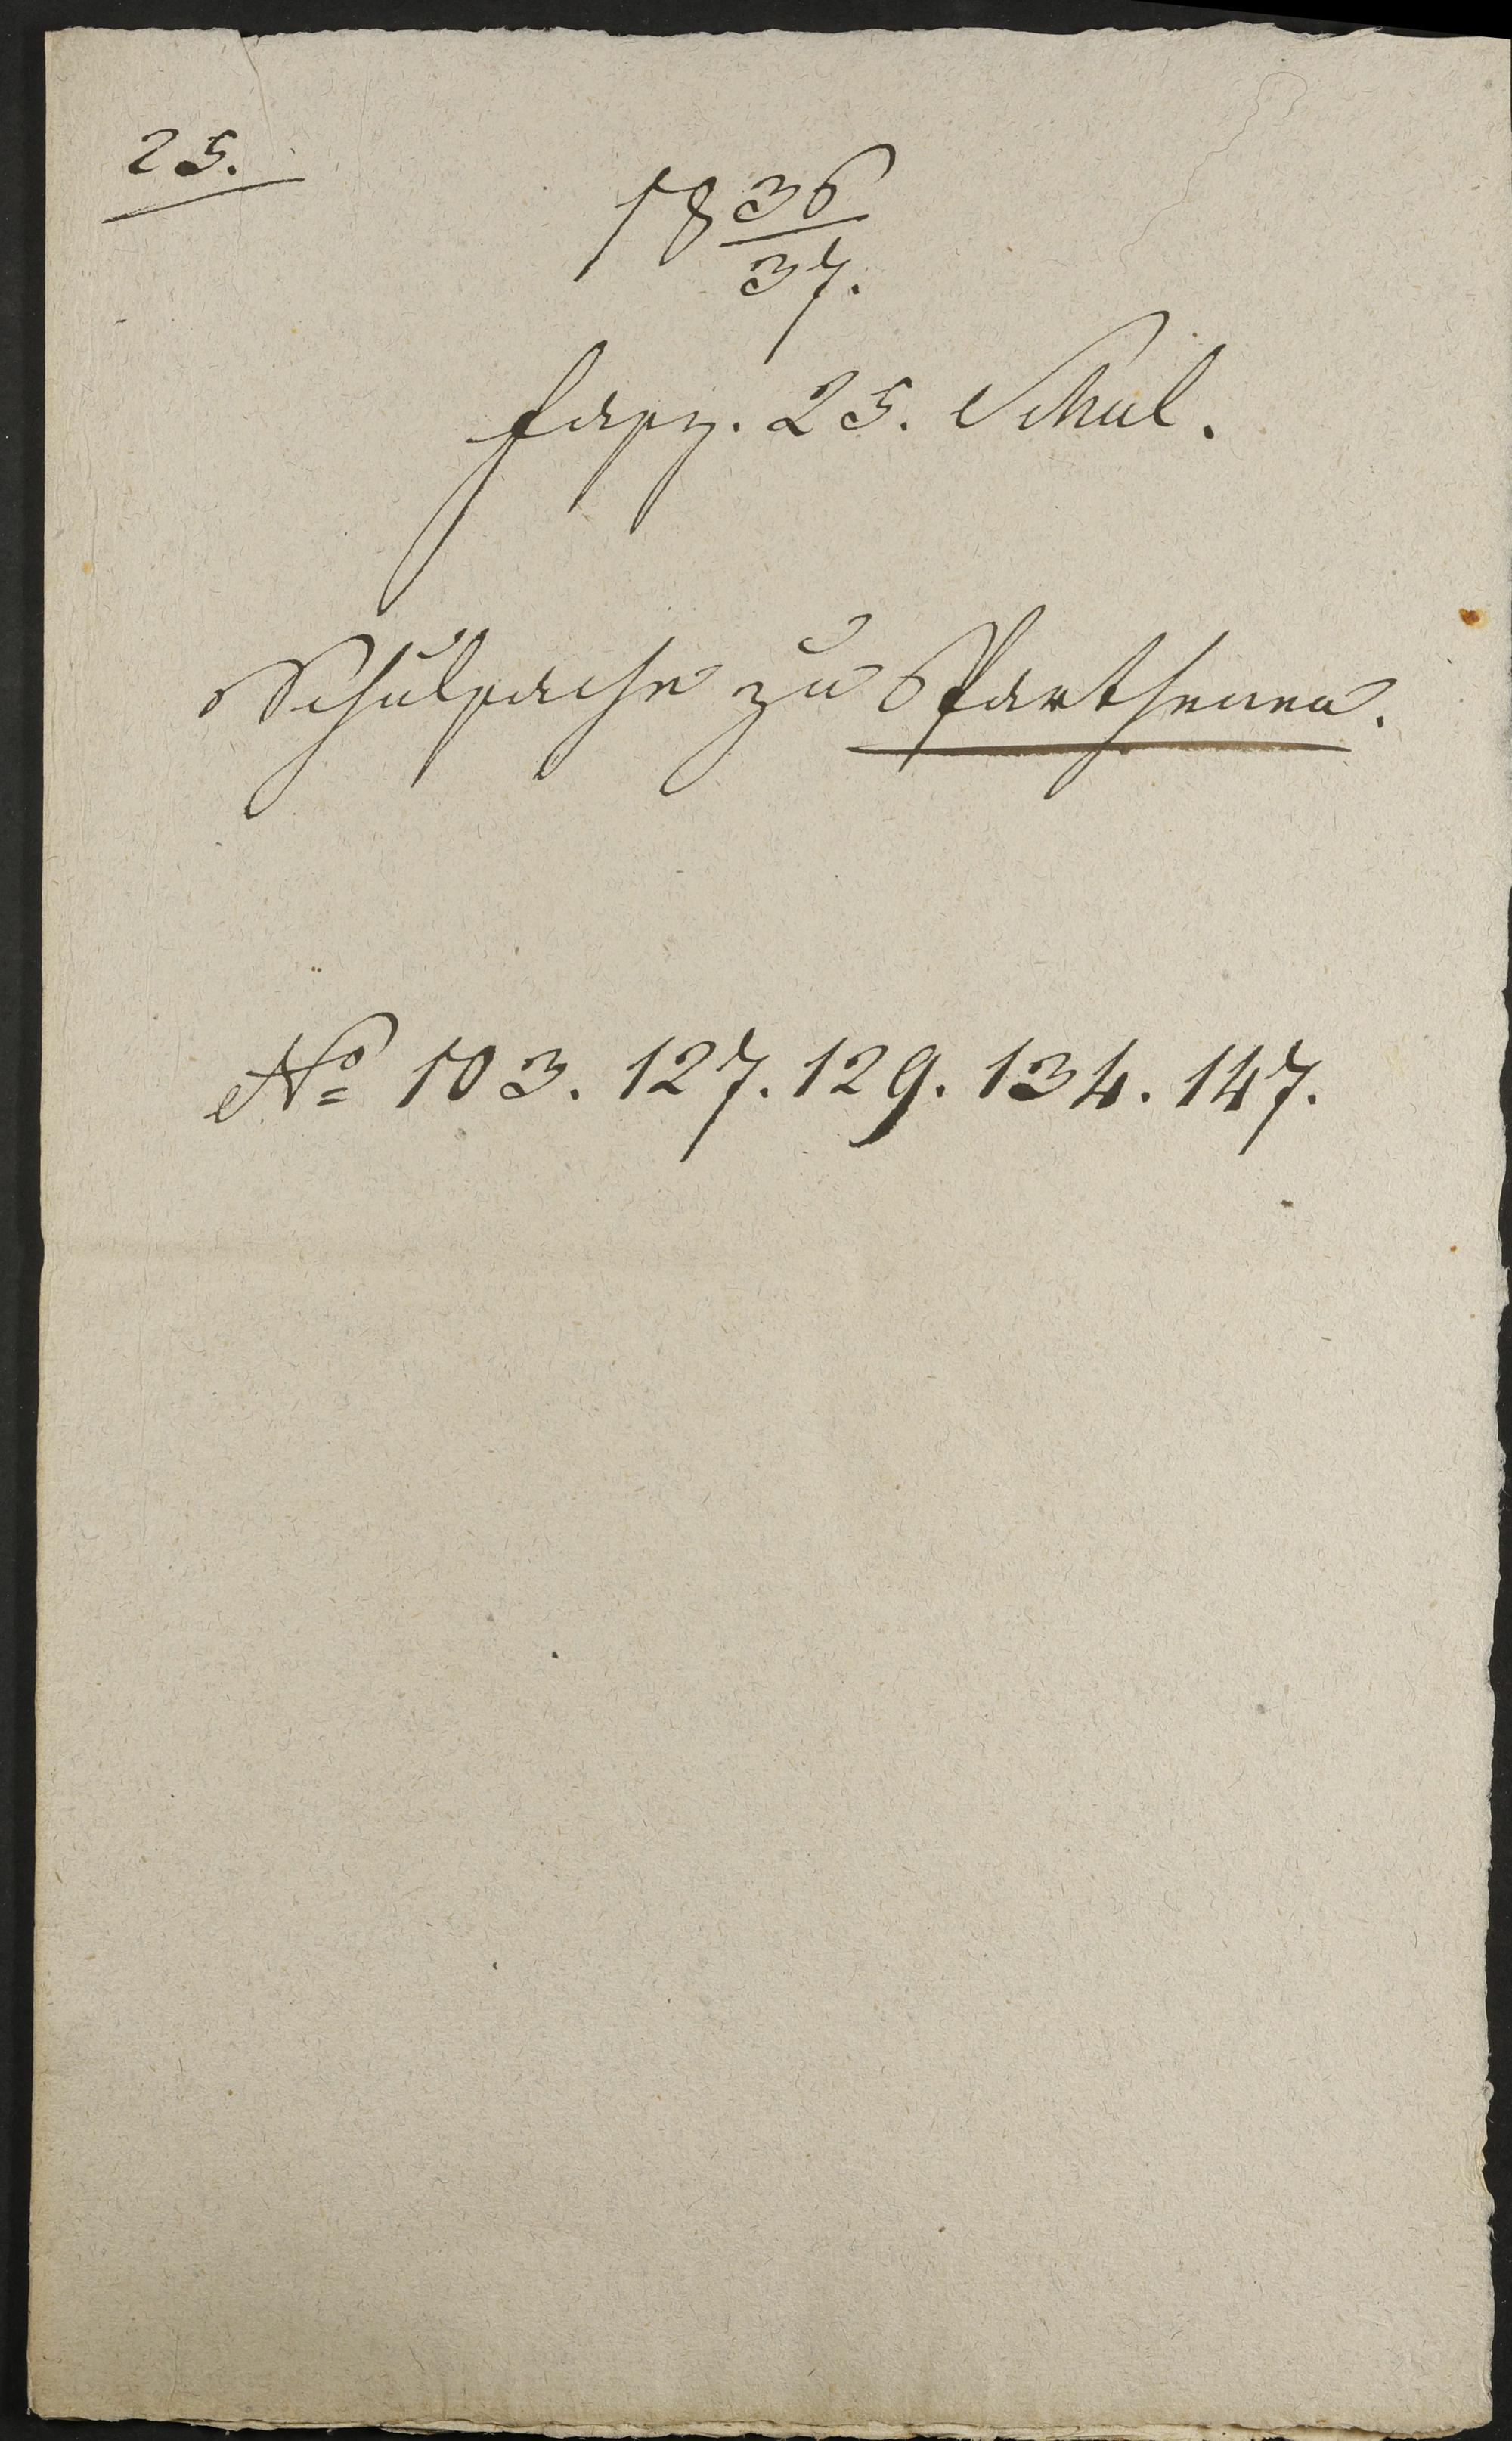 25.
1836/37.
fasz. 25. Schul.
Schulsache zu Parthenen.
No 103. 127. 129. 134. 147.